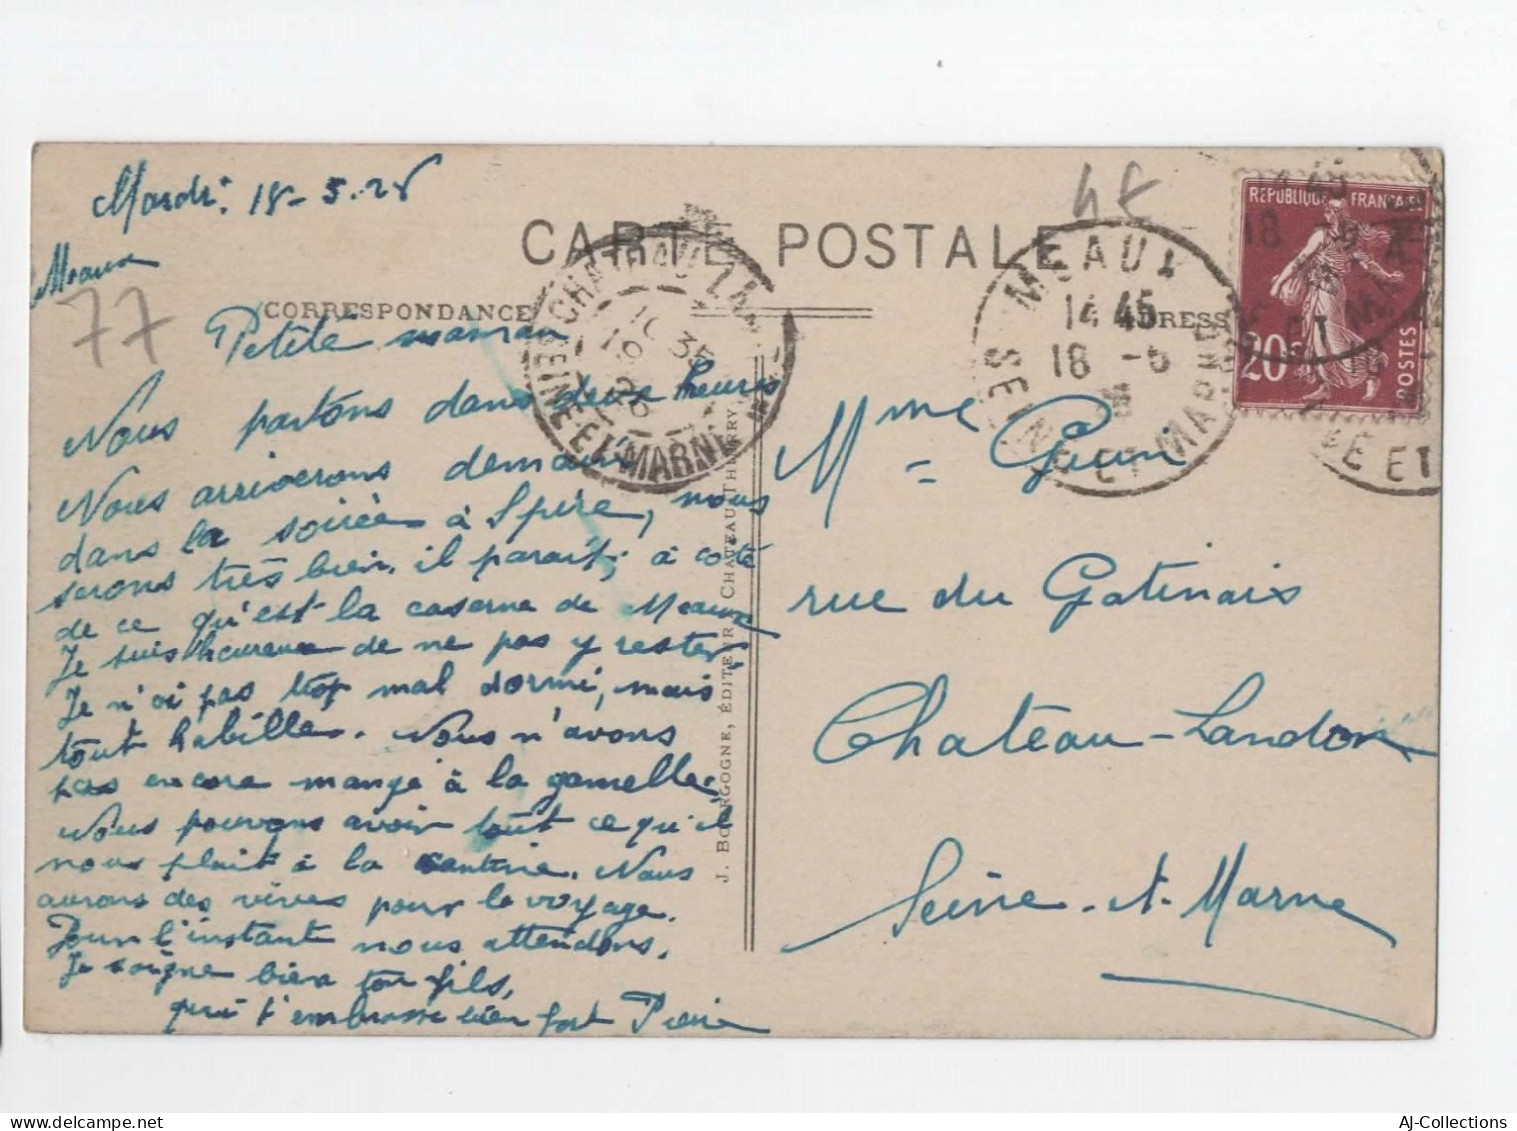 Mardi 18-5-26
Meaux
77
CARTE POSTALE
CORRESPONDANCE
ADRESSE
Petite maman
Nous partons dans deux heures
Nous arriverons demain
dans la soirée à Spire, nous
serons très bien, il paraît, à coté
de ce qu'est la caserne de Meaux
Je suis heureux de ne pas y rester.
Je n'ai pas trop mal dormi, mais
tout habillé. Nous n'avons
pas encore mangé à la gamelle.
Nous pouvons avoir tout ce qu'il
nous plait à la cantine. Nous
aurons des vivres pour le voyage.
Pour l'instant nous attendons.
Je soigne bien ton fils,
qui t'embrasse bien fort Pierre
J. BOURGOGNE, ÉDITEUR, CHATEAU-THIERRY
CHATEAU-LANDON
SEINE-ET-MARNE
MEAUX
14 45
18 -5
SEINE ET MARNE
REPUBLIQUE FRANÇAISE
20c
POSTES
Mme
rue du Gatinais
Chateau-Landon
Seine-et-Marne
AJ-Collections